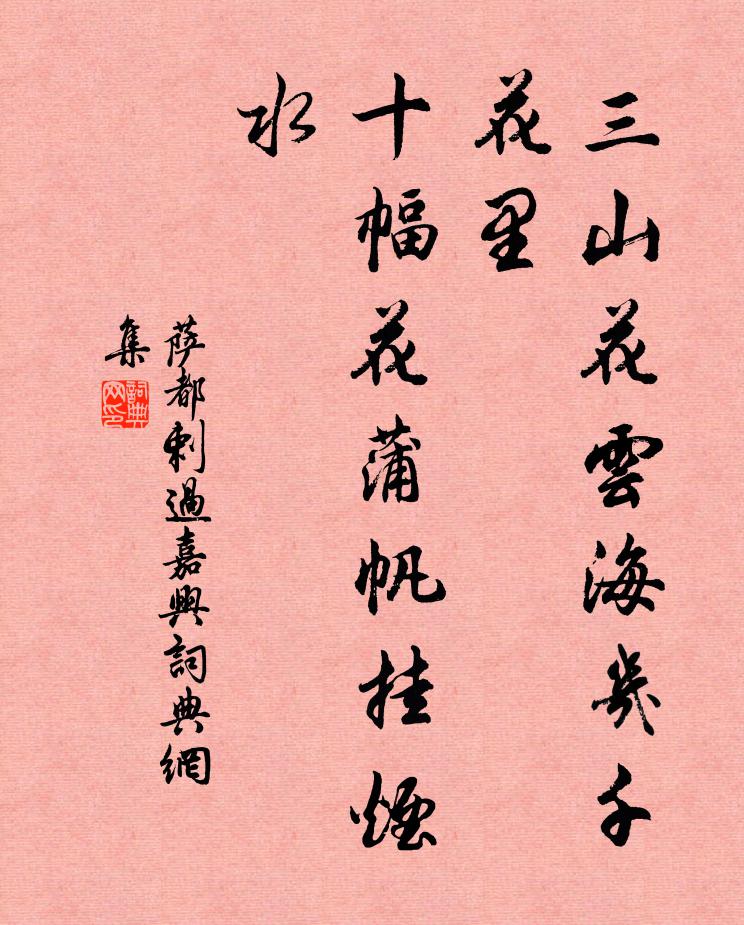 三山花雲海幾千
花里
十幅花蒲帆挂煙
水
薩都剌過嘉興詞典網
集
詞典
网印